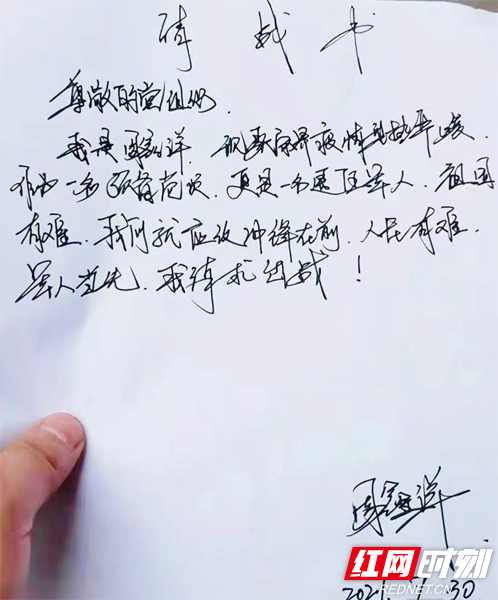 请战书
尊敬的党组织
我是周鑫洋. 现张家界疫情形势严峻
作为一名 党员, 更是一名退伍军人. 祖国
有难. 我们就应该冲锋在前. 人民有难.
军人首先. 我请求出战!
周鑫洋
红网时刻
REDNET.CN
2021. 7. 30